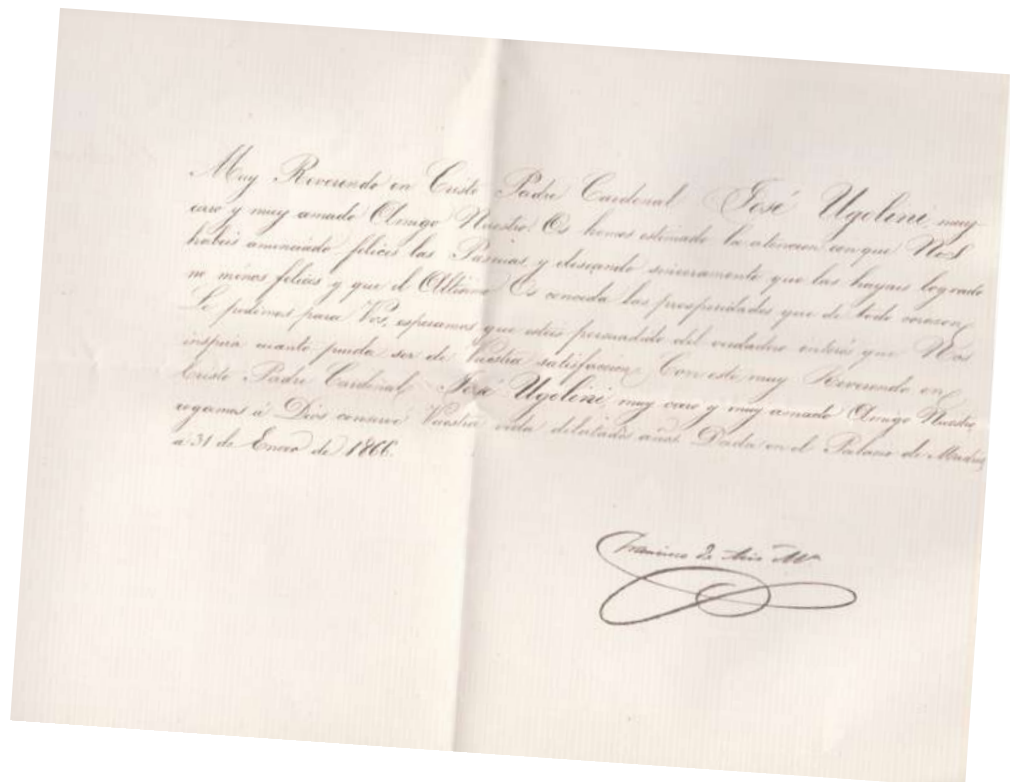 Muy Reverendo en Cristo Padre Cardenal José Ugolini, muy
caro y muy amado Amigo Nuestro. Os hemos estimado la atencion con que Nos
habeis anunciado felices las Pascuas, y deseando sinceramente que las hayais logrado
no menos felices y que el Altísimo Os conceda las prosperidades que de todo corazon
Le pedimos para Vos, esperamos que esteis persuadido del verdadero interés que Nos
inspira cuanto pueda ser de Vuestra satisfaccion. Con esto muy Reverendo en
Cristo Padre Cardenal José Ugolini, muy caro y muy amado Amigo Nuestro,
rogamos á Dios conserve Vuestra vida dilatados años. Dada en el Palacio de Madrid
a 31 de Enero de 1866.
Francisco de Asis Mª